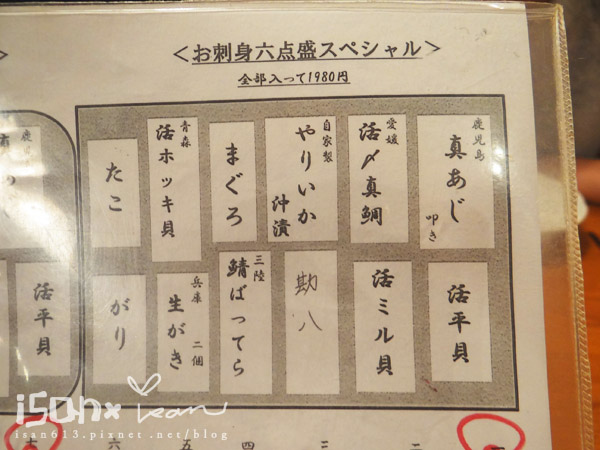 ＜お刺身六点盛スペシャル＞
全部入って1980円
鹿児島
真あじ
叩き
愛媛
活〆真鯛
自家製
やりいか
沖漬
まぐろ
青森
活ホッキ貝
たこ
活平貝
活ミル貝
勘八
三陸
鯖ばってら
兵庫
生がき
二個
がり
鹿
活平貝
二
三
四
五
六
isan613.pixnet.net/blog